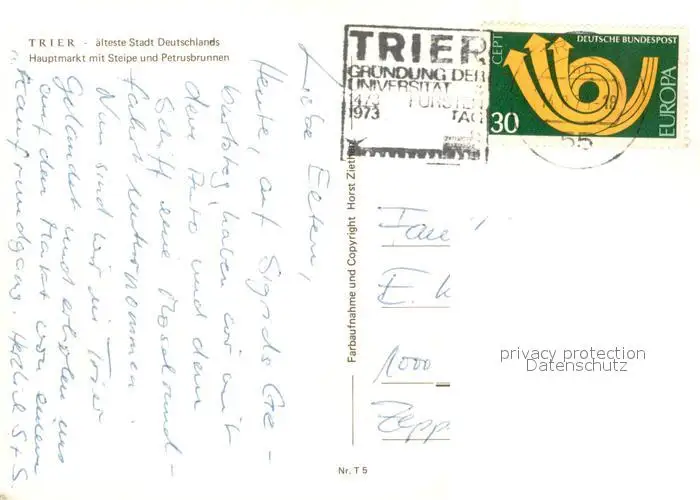 TRIER - älteste Stadt Deutschlands
Hauptmarkt mit Steipe und Petrusbrunnen
Liebe Eltern,
Heute, auf Sigrids Ge-
burtstag, haben wir mit
dem Auto und dem
Schiff eine Moselrund-
fahrt unternommen.
Nun sind wir in Trier
gelandet und erholen uns
auf dem Markt von einem
Rundgang. Herzlich S+S.
Farbaufnahme und Copyright Horst Ziethen
Nr. T 5
TRIER
GRÜNDUNG DER
UNIVERSITÄT
1473 FÜRSTEN
1973 TAG
CEPT
DEUTSCHE BUNDESPOST
EUROPA
30
55
Fam
E. K
1000
Zepp
privacy protection
Datenschutz